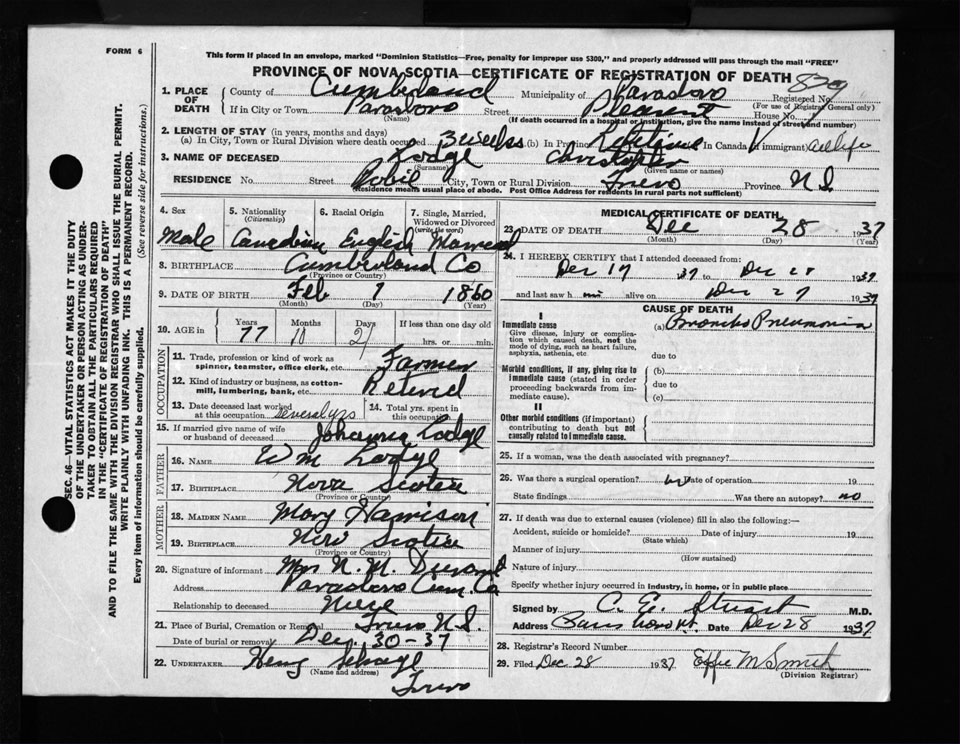 FORM 6
This form if placed in an envelope, marked "Dominion Statistics—Free, penalty for improper use $300," and properly addressed will pass through the mail "FREE"
PROVINCE OF NOVA SCOTIA—CERTIFICATE OF REGISTRATION OF DEATH
1. PLACE OF DEATH County of Cumberland Municipality of Parrsboro Registered No. 829
(For use of Registrar General only)
If in City or Town Parrsboro Street House No.
(Name) (If death occurred in a hospital or institution, give the name instead of street and number)
2. LENGTH OF STAY (in years, months and days)
(a) In City, Town or Rural Division where death occurred 3 weeks (b) In Province Lifetime In Canada (if immigrant) all life
3. NAME OF DECEASED Lodge Christopher
(Surname) (Given name or names)
RESIDENCE No. Street City, Town or Rural Division Truro Province N.S.
(Residence means usual place of abode. Post Office Address for residents in rural parts not sufficient)
4. Sex 5. Nationality (Citizenship) 6. Racial Origin 7. Single, Married, Widowed or Divorced (write the word)
Male Canadian English Married
8. BIRTHPLACE Cumberland Co
(Province or Country)
9. DATE OF BIRTH Feb 7 1860
(Month) (Day) (Year)
10. AGE in Years Months Days If less than one day
77 10 21 hrs. or min.
OCCUPATION
11. Trade, profession or kind of work as spinner, teamster, office clerk, etc. Farmer
12. Kind of industry or business, as cotton-mill, lumbering, bank, etc. Retired
13. Date deceased last worked at this occupation several yrs 14. Total yrs. spent in this occupation
15. If married give name of wife or husband of deceased Johanna Lodge
FATHER
16. NAME Wm Lodge
17. BIRTHPLACE Nova Scotia
(Province or Country)
MOTHER
18. MAIDEN NAME Mary Harrison
19. BIRTHPLACE Nova Scotia
(Province or Country)
20. Signature of informant Mrs N. M.
Address Parrsboro Cum. Co
Relationship to deceased Niece
21. Place of Burial, Cremation or Removal Truro N.S.
Date of burial or removal Dec. 30-37
22. UNDERTAKER
(Name and address)
Truro
MEDICAL CERTIFICATE OF DEATH
23. DATE OF DEATH Dec 28 1937
(Month) (Day) (Year)
24. I HEREBY CERTIFY that I attended deceased from:
Dec 17 1937 to Dec 28 1937
and last saw him alive on Dec 27 1937
CAUSE OF DEATH
I
Immediate cause (a) Broncho Pneumonia
Give disease, injury or complication which caused death, not the mode of dying, such as heart failure, asphyxia, asthenia, etc due to
Morbid conditions, if any, giving rise to immediate cause (stated in order proceeding backwards from immediate cause). (b)
due to
(c)
II
Other morbid conditions (if important) contributing to death but not causally related to immediate cause.
25. If a woman, was the death associated with pregnancy?
26. Was there a surgical operation? no Date of operation 19
State findings Was there an autopsy? no
27. If death was due to external causes (violence) fill in also the following:—
Accident, suicide or homicide? Date of injury 19
(State which)
Manner of injury
(How sustained)
Nature of injury
Specify whether injury occurred in industry, in home, or in public place
Signed by C. E. Stuart M.D.
Address Date Dec 28 1937
28. Registrar's Record Number
29. Filed Dec 28 1937 Effie M Smith
(Division Registrar)
SEC. 46—VITAL STATISTICS ACT MAKES IT THE DUTY
OF THE UNDERTAKER OR PERSON ACTING AS UNDER-
TAKER TO OBTAIN ALL THE PARTICULARS REQUIRED
IN THE "CERTIFICATE OF REGISTRATION OF DEATH"
AND TO FILE THE SAME WITH THE DIVISION REGISTRAR WHO SHALL ISSUE THE BURIAL PERMIT.
WRITE PLAINLY WITH UNFADING INK. THIS IS A PERMANENT RECORD.
Every item of information should be carefully supplied. (See reverse side for instructions.)